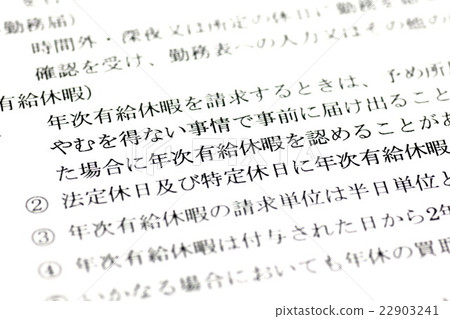 務届)
時間外・深夜又は所定の休日に勤務を
確認を受け、勤務表への入力又はその他の
有給休暇)
年次有給休暇を請求するときは、予め所
やむを得ない事情で事前に届け出ること
た場合に年次有給休暇を認めることがあ
② 法定休日及び特定休日に年次有給休暇
③ 年次有給休暇の請求単位は半日単位と
④ 年次有給休暇は付与された日から2年
いかなる場合においても年休の買取
22903241